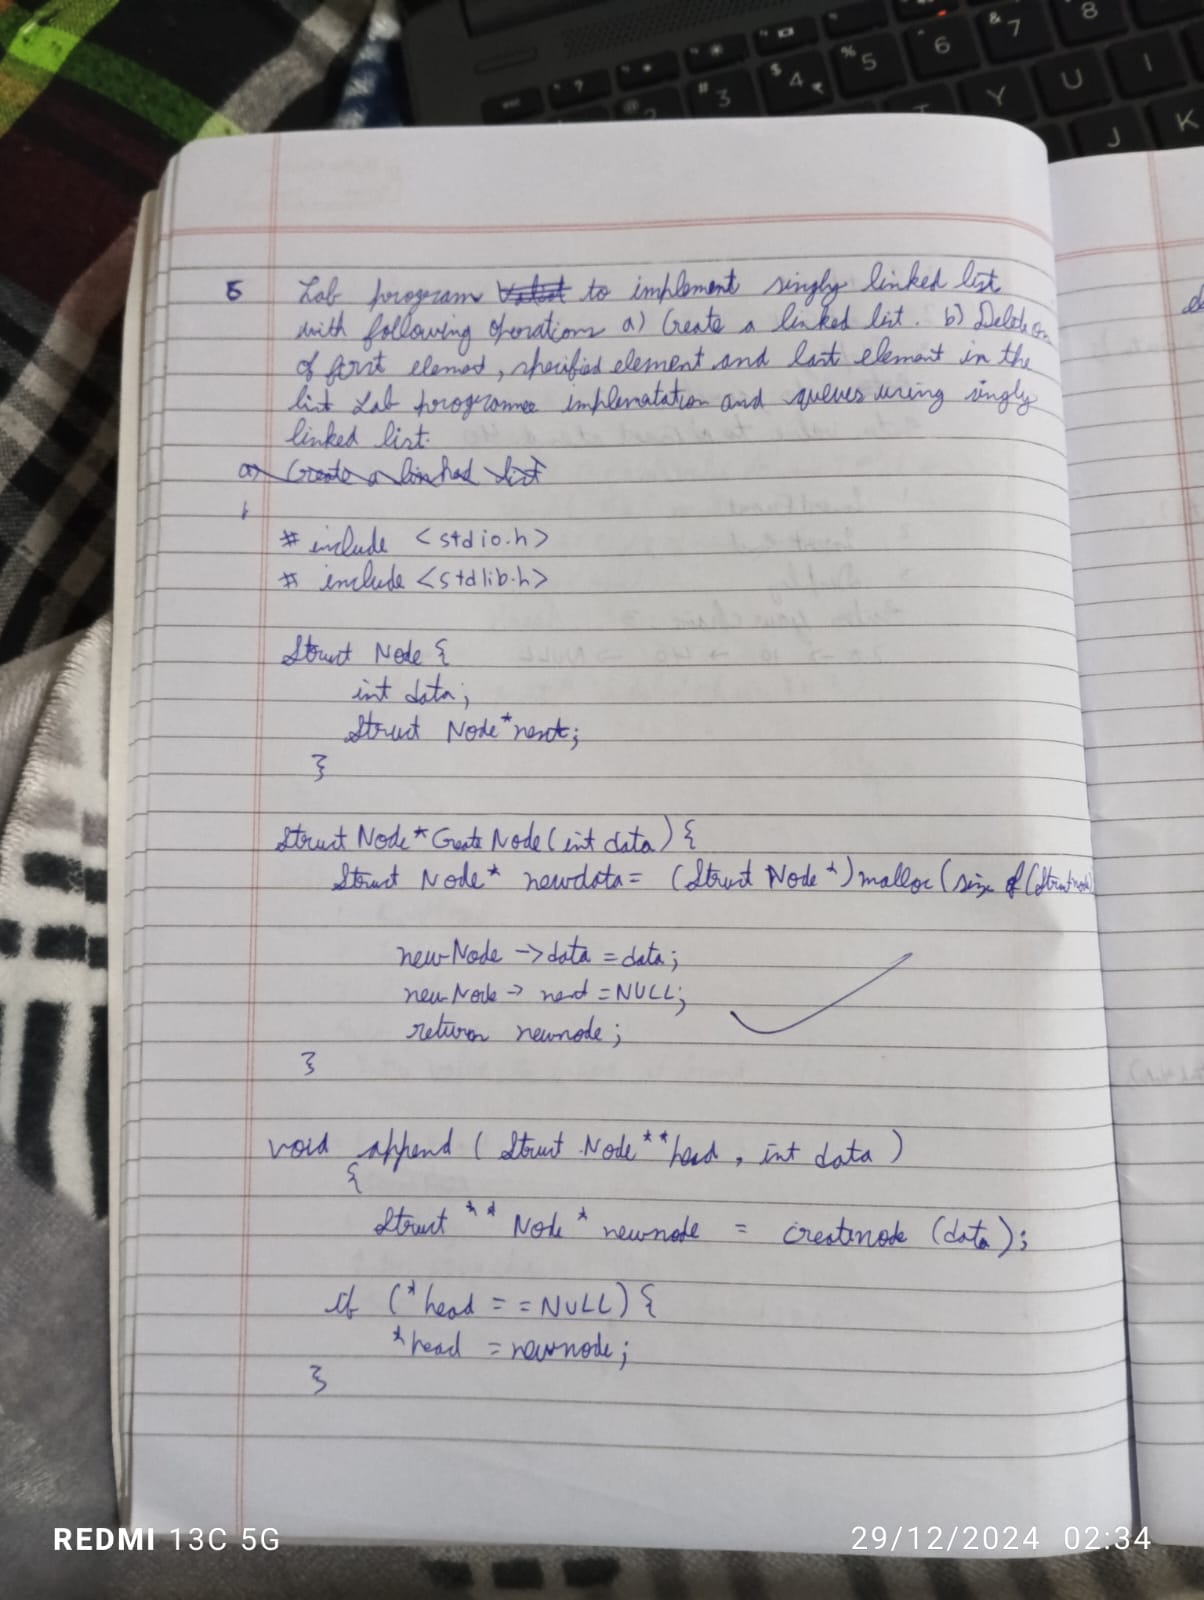 5 Lab program to implement singly linked list
with following operations a) Create a linked list. b) Deletion
of first element, specified element and last element in the
list Lab programme implementation and queues using singly
linked list.
a) Create a linked list
# include <stdio.h>
# include <stdlib.h>
Struct Node {
int data;
Struct Node *next;
}
Struct Node * Create Node (int data) {
Struct Node * newdata = (Struct Node *) malloc (size of (Struct node)
new Node -> data = data;
new Node -> next = NULL;
return newnode;
}
void append ( Struct Node ** head , int data )
{
Struct ** Node * newnode = createnode (data);
if (*head = = NULL) {
*head = newnode;
}
REDMI 13C 5G
29/12/2024 02:34
& 7
8
% 5
6
$ 4 ₹
# 3
Y
U
I
J
K